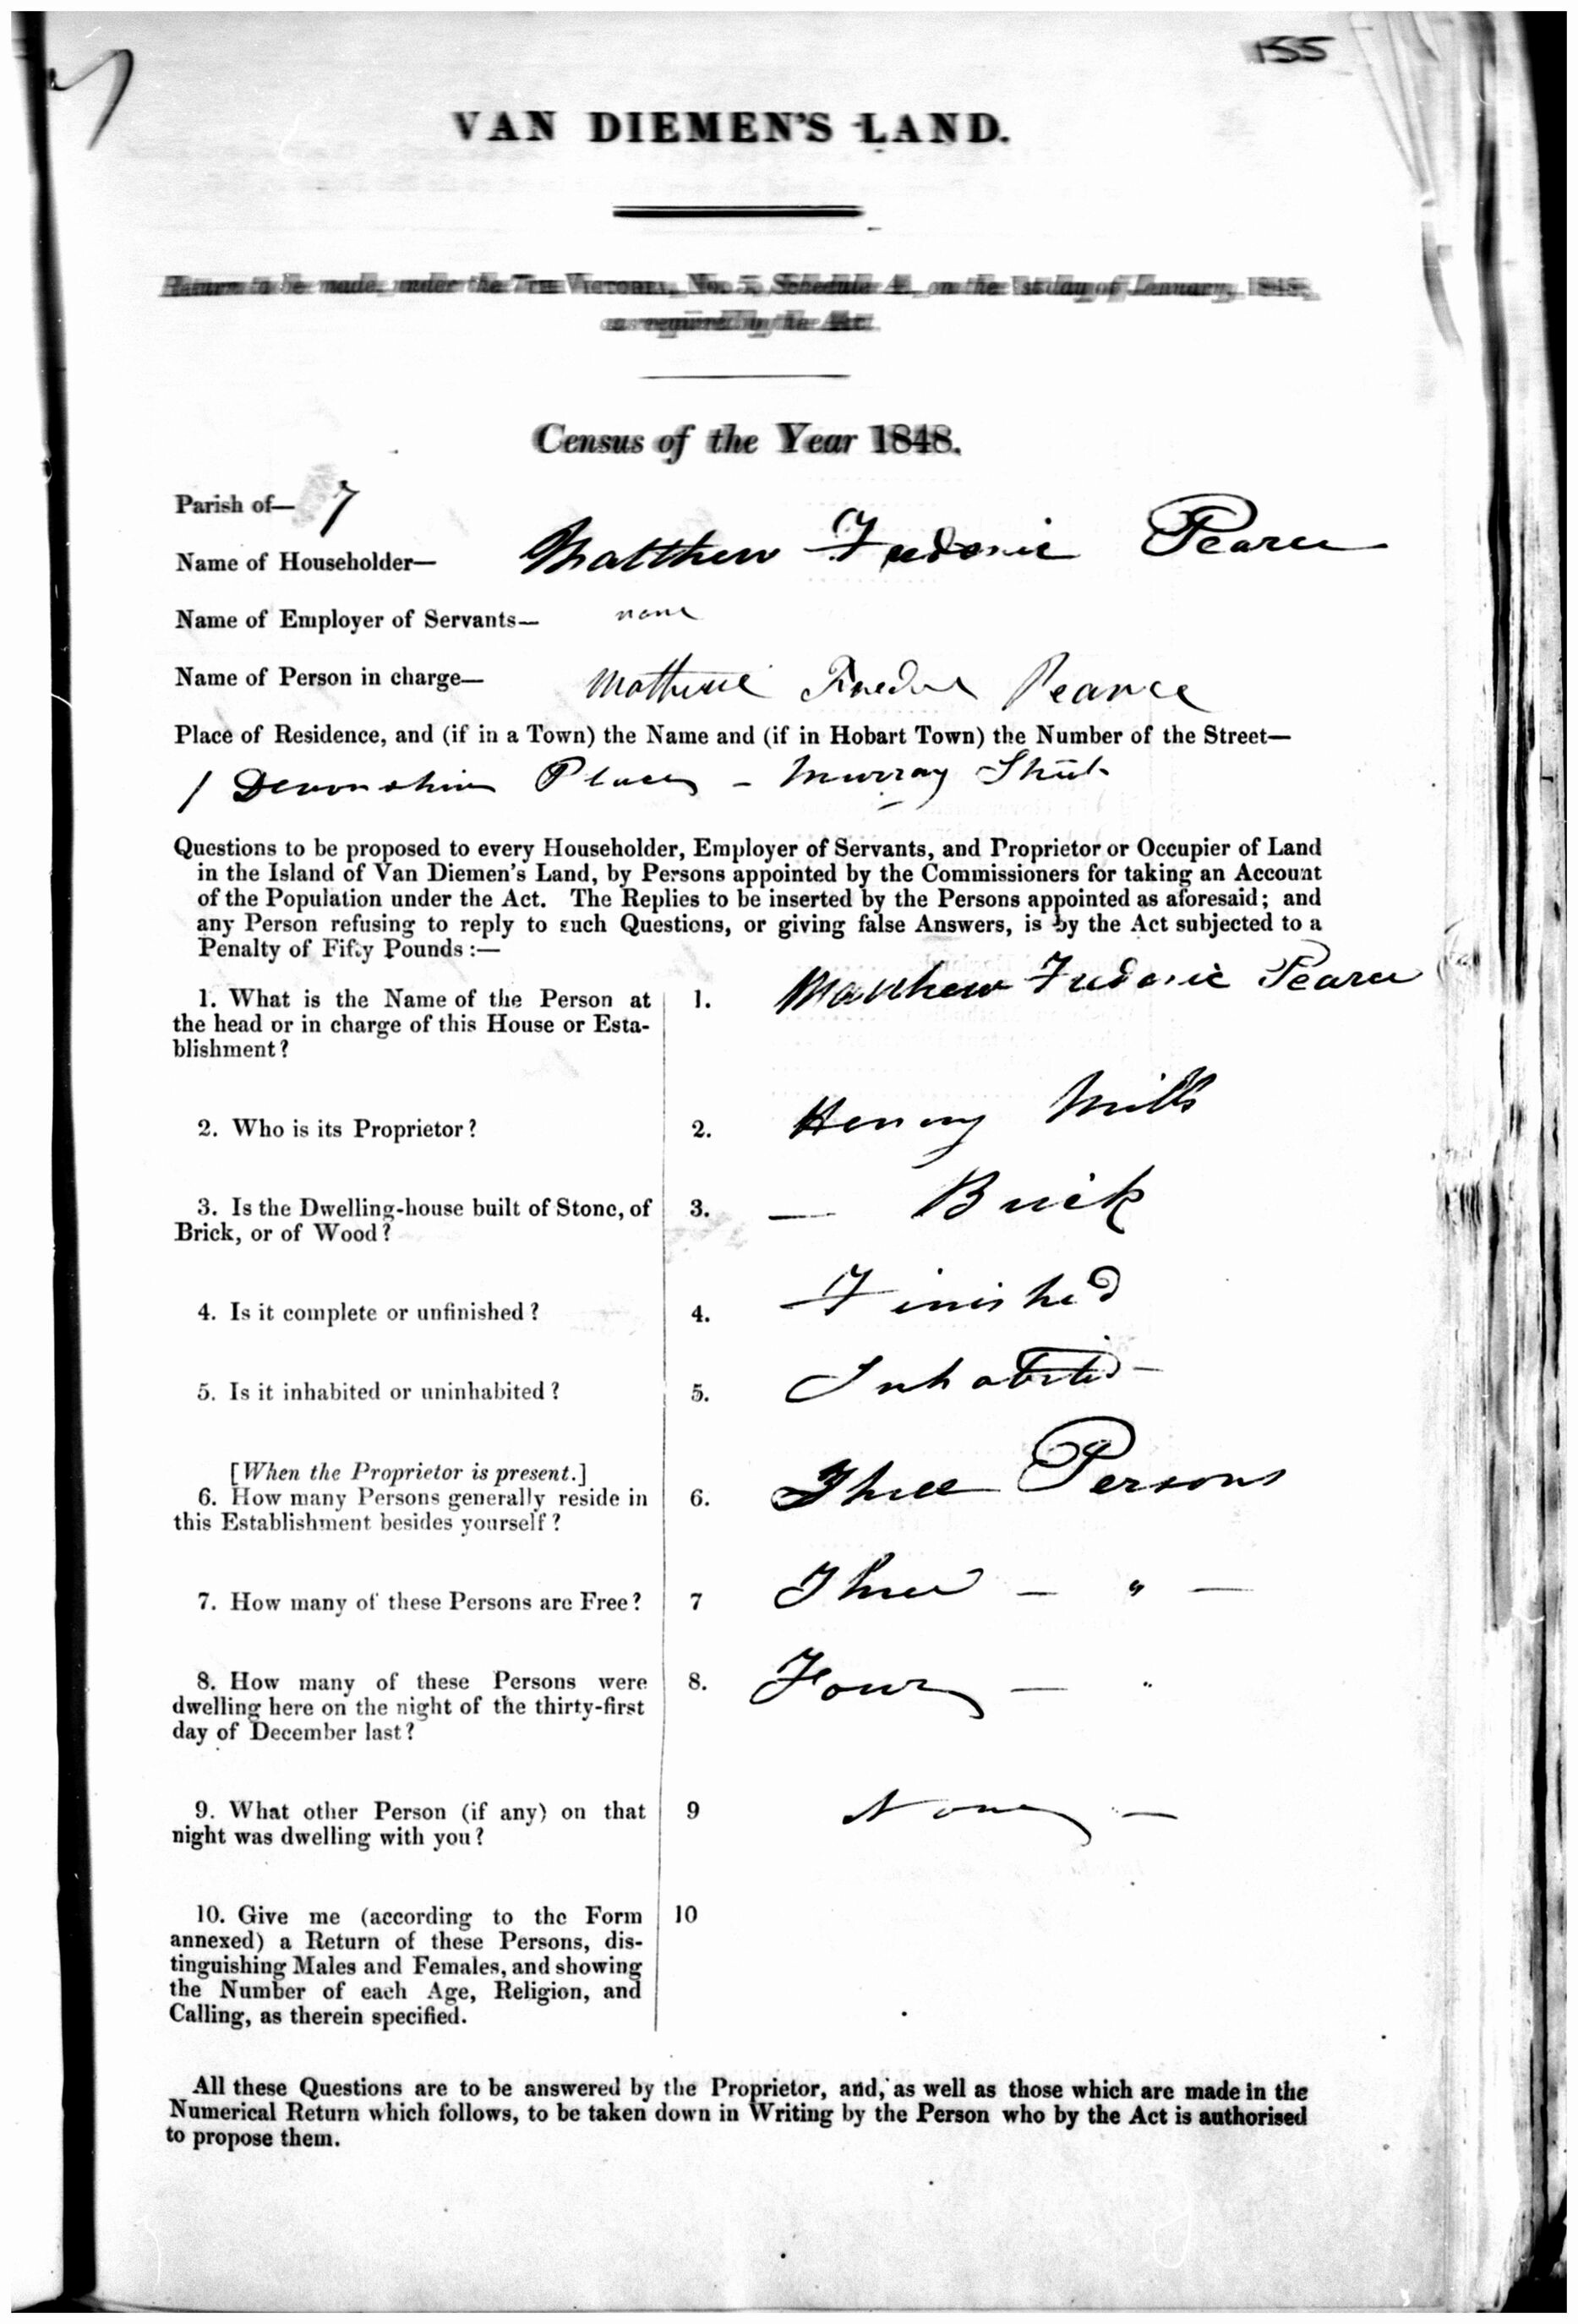 155
VAN DIEMEN'S LAND.
Return to be made, under the 7TH VICTORIA, No. 5, Schedule A, on the 1st day of January, 1848,
as required by the Act.
Census of the Year 1848.
Parish of— 7
Name of Householder— Matthew Frederic Pearce
Name of Employer of Servants— none
Name of Person in charge— Pearce
Place of Residence, and (if in a Town) the Name and (if in Hobart Town) the Number of the Street—
1 Devonshire Place - Murray Street
Questions to be proposed to every Householder, Employer of Servants, and Proprietor or Occupier of Land
in the Island of Van Diemen's Land, by Persons appointed by the Commissioners for taking an Account
of the Population under the Act. The Replies to be inserted by the Persons appointed as aforesaid; and
any Person refusing to reply to such Questions, or giving false Answers, is by the Act subjected to a
Penalty of Fifty Pounds :—
1. What is the Name of the Person at 1. Matthew Frederic Pearce
the head or in charge of this House or Esta-
blishment?
2. Who is its Proprietor? 2. Henry Mills
3. Is the Dwelling-house built of Stone, of 3. — Brick
Brick, or of Wood?
4. Is it complete or unfinished? 4. Finished
5. Is it inhabited or uninhabited? 5. Inhabited —
[When the Proprietor is present.]
6. How many Persons generally reside in 6. Three Persons
this Establishment besides yourself?
7. How many of these Persons are Free? 7 Three — " —
8. How many of these Persons were 8. Four — "
dwelling here on the night of the thirty-first
day of December last?
9. What other Person (if any) on that 9 None —
night was dwelling with you?
10. Give me (according to the Form 10
annexed) a Return of these Persons, dis-
tinguishing Males and Females, and showing
the Number of each Age, Religion, and
Calling, as therein specified.
All these Questions are to be answered by the Proprietor, and, as well as those which are made in the
Numerical Return which follows, to be taken down in Writing by the Person who by the Act is authorised
to propose them.